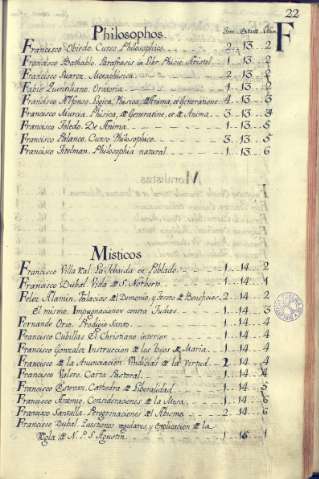 22
Philosophos
F
Francisco Obiedo. Curso Philosophico 2 13 2
Francisco Bathablo. Paraphrasis in Libr. Phisic. Aristot. 1 13 2
Francisco Suarez. Metaphisica 2 13 2
Fabio Quintiliano. Oratoria 1 13 2
Francisco Alfonso. Logica, Phisica, Anima, et Generatione 4 13 3
Francisco Murcia. Phisica, Generatione, et Anima 3 13
Francisco Toledo. De Anima 1 13
Francisco Palanco. Curso Philosophico 3 13 5
Francisco Titelman. Philosophia natural 1 13 6
Misticos
Francisco Villa Real. La Thebaida en Poblado 1 14 2
Francisco Dubal. Vida de S. Norberto 1 14 1
Felix Alamin. Falacias del Demonio, y 2 14 2
El mismo. Impugnaciones contra Judios 1 14 3
Fernando Oria. Prodigio Santo 1 14 4
Francisco Cubillas. El Christiano interior 1 14 4
Francisco Gonzalez. Instruccion de las hijas de Maria 1 14 4
Francisco de la Anunciacion. Vindicias de la Virtud 2 14 4
Francisco Valero. Carta Pastoral 1 14 4
Francisco Cathedra de Liberalidad 1 14 5
Francisco Consideraciones de la Misa 1 14 6
Francisco Santulla. Peregrinaciones del Abismo 2 14 6
Francisco Dubal. Questiones regulares y explicacion de la
Regla de N. P. S. Agustin 1 1